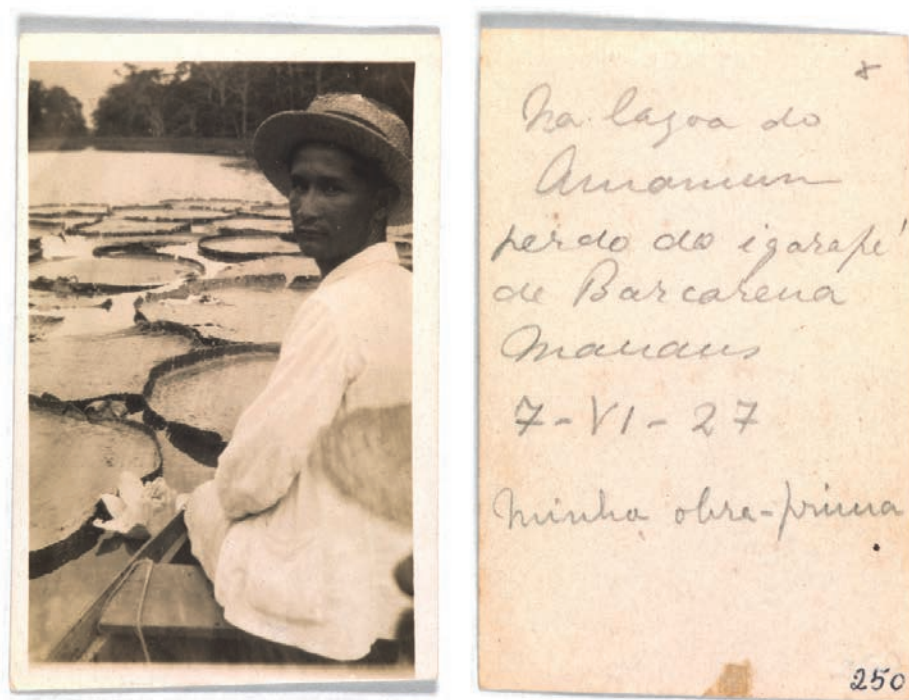 Na lagoa do
Amanium
perdo do igarapé
de Barcarena
Manaus
7-VI-27
Minha obra-prima
250